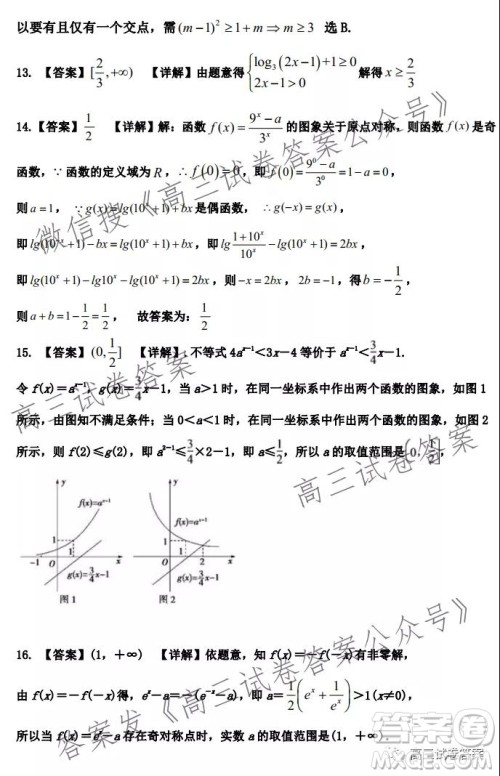 以要有且仅有一个交点，需(m−1)²≥1+m⇒m≥3 选 B.
13. 【答案】[2/3,+∞) 【详解】由题意得{log₃(2x−1)+1≥0 2x−1>0 解得 x≥2/3
14.【答案】1/2 【详解】解：函数 f(x)=(9ˣ−a)/3ˣ 的图象关于原点对称，则函数 f(x) 是奇
函数，∵函数的定义域为 R，∴f(0)=0，即 f(0)=(9⁰−a)/3⁰=1−a=0，
则 a=1，∵g(x)=lg(10ˣ+1)+bx 是偶函数，∴g(−x)=g(x)，
即 lg(10⁻ˣ+1)−bx=lg(10ˣ+1)+bx，即 lg(1+10ˣ)/10ˣ−lg(10ˣ+1)=2bx，
即 lg(10ˣ+1)−lg10ˣ−lg(10ˣ+1)=2bx，则−x=2bx，2b=−1，得 b=−1/2，
则 a+b=1−1/2=1/2，故答案为：1/2
15. 【答案】(0,1/2] 【详解】：不等式 4aˣ⁻¹<3x−4 等价于 aˣ⁻¹<3/4x−1.
令 f(x)=aˣ⁻¹，g(x)=3/4x−1，当 a>1 时，在同一坐标系中作出两个函数的图象，如图 1
所示，由图知不满足条件；当 0<a<1 时，在同一坐标系中作出两个函数的图象，如图 2
所示，则 f(2)≤g(2)，即 a²⁻¹≤3/4×2−1，即 a≤1/2，所以 a 的取值范围是(0,1/2]，
y
f(x)=aˣ⁻¹
1
−1 O 1 x
g(x)=3/4x−1
图 1
y
f(x)=aˣ⁻¹
1
O 1 2 x
g(x)=3/4x−1
图 2
16. 【答案】(1，+∞) 【详解】依题意，知 f(x)=−f(−x)有非零解，
由 f(x)=−f(−x)得，eˣ−a=−(e⁻ˣ−a)，即 a=1/2(eˣ+1/eˣ)>1(x≠0)，
所以当 f(x)=eˣ−a 存在奇对称点时，实数 a 的取值范围是(1，+∞).
微信搜《高三试卷答案公众号》
高三试卷答案
高三试卷答案
答案发《高三试卷答案公众号》
高三试卷答案
答案圈